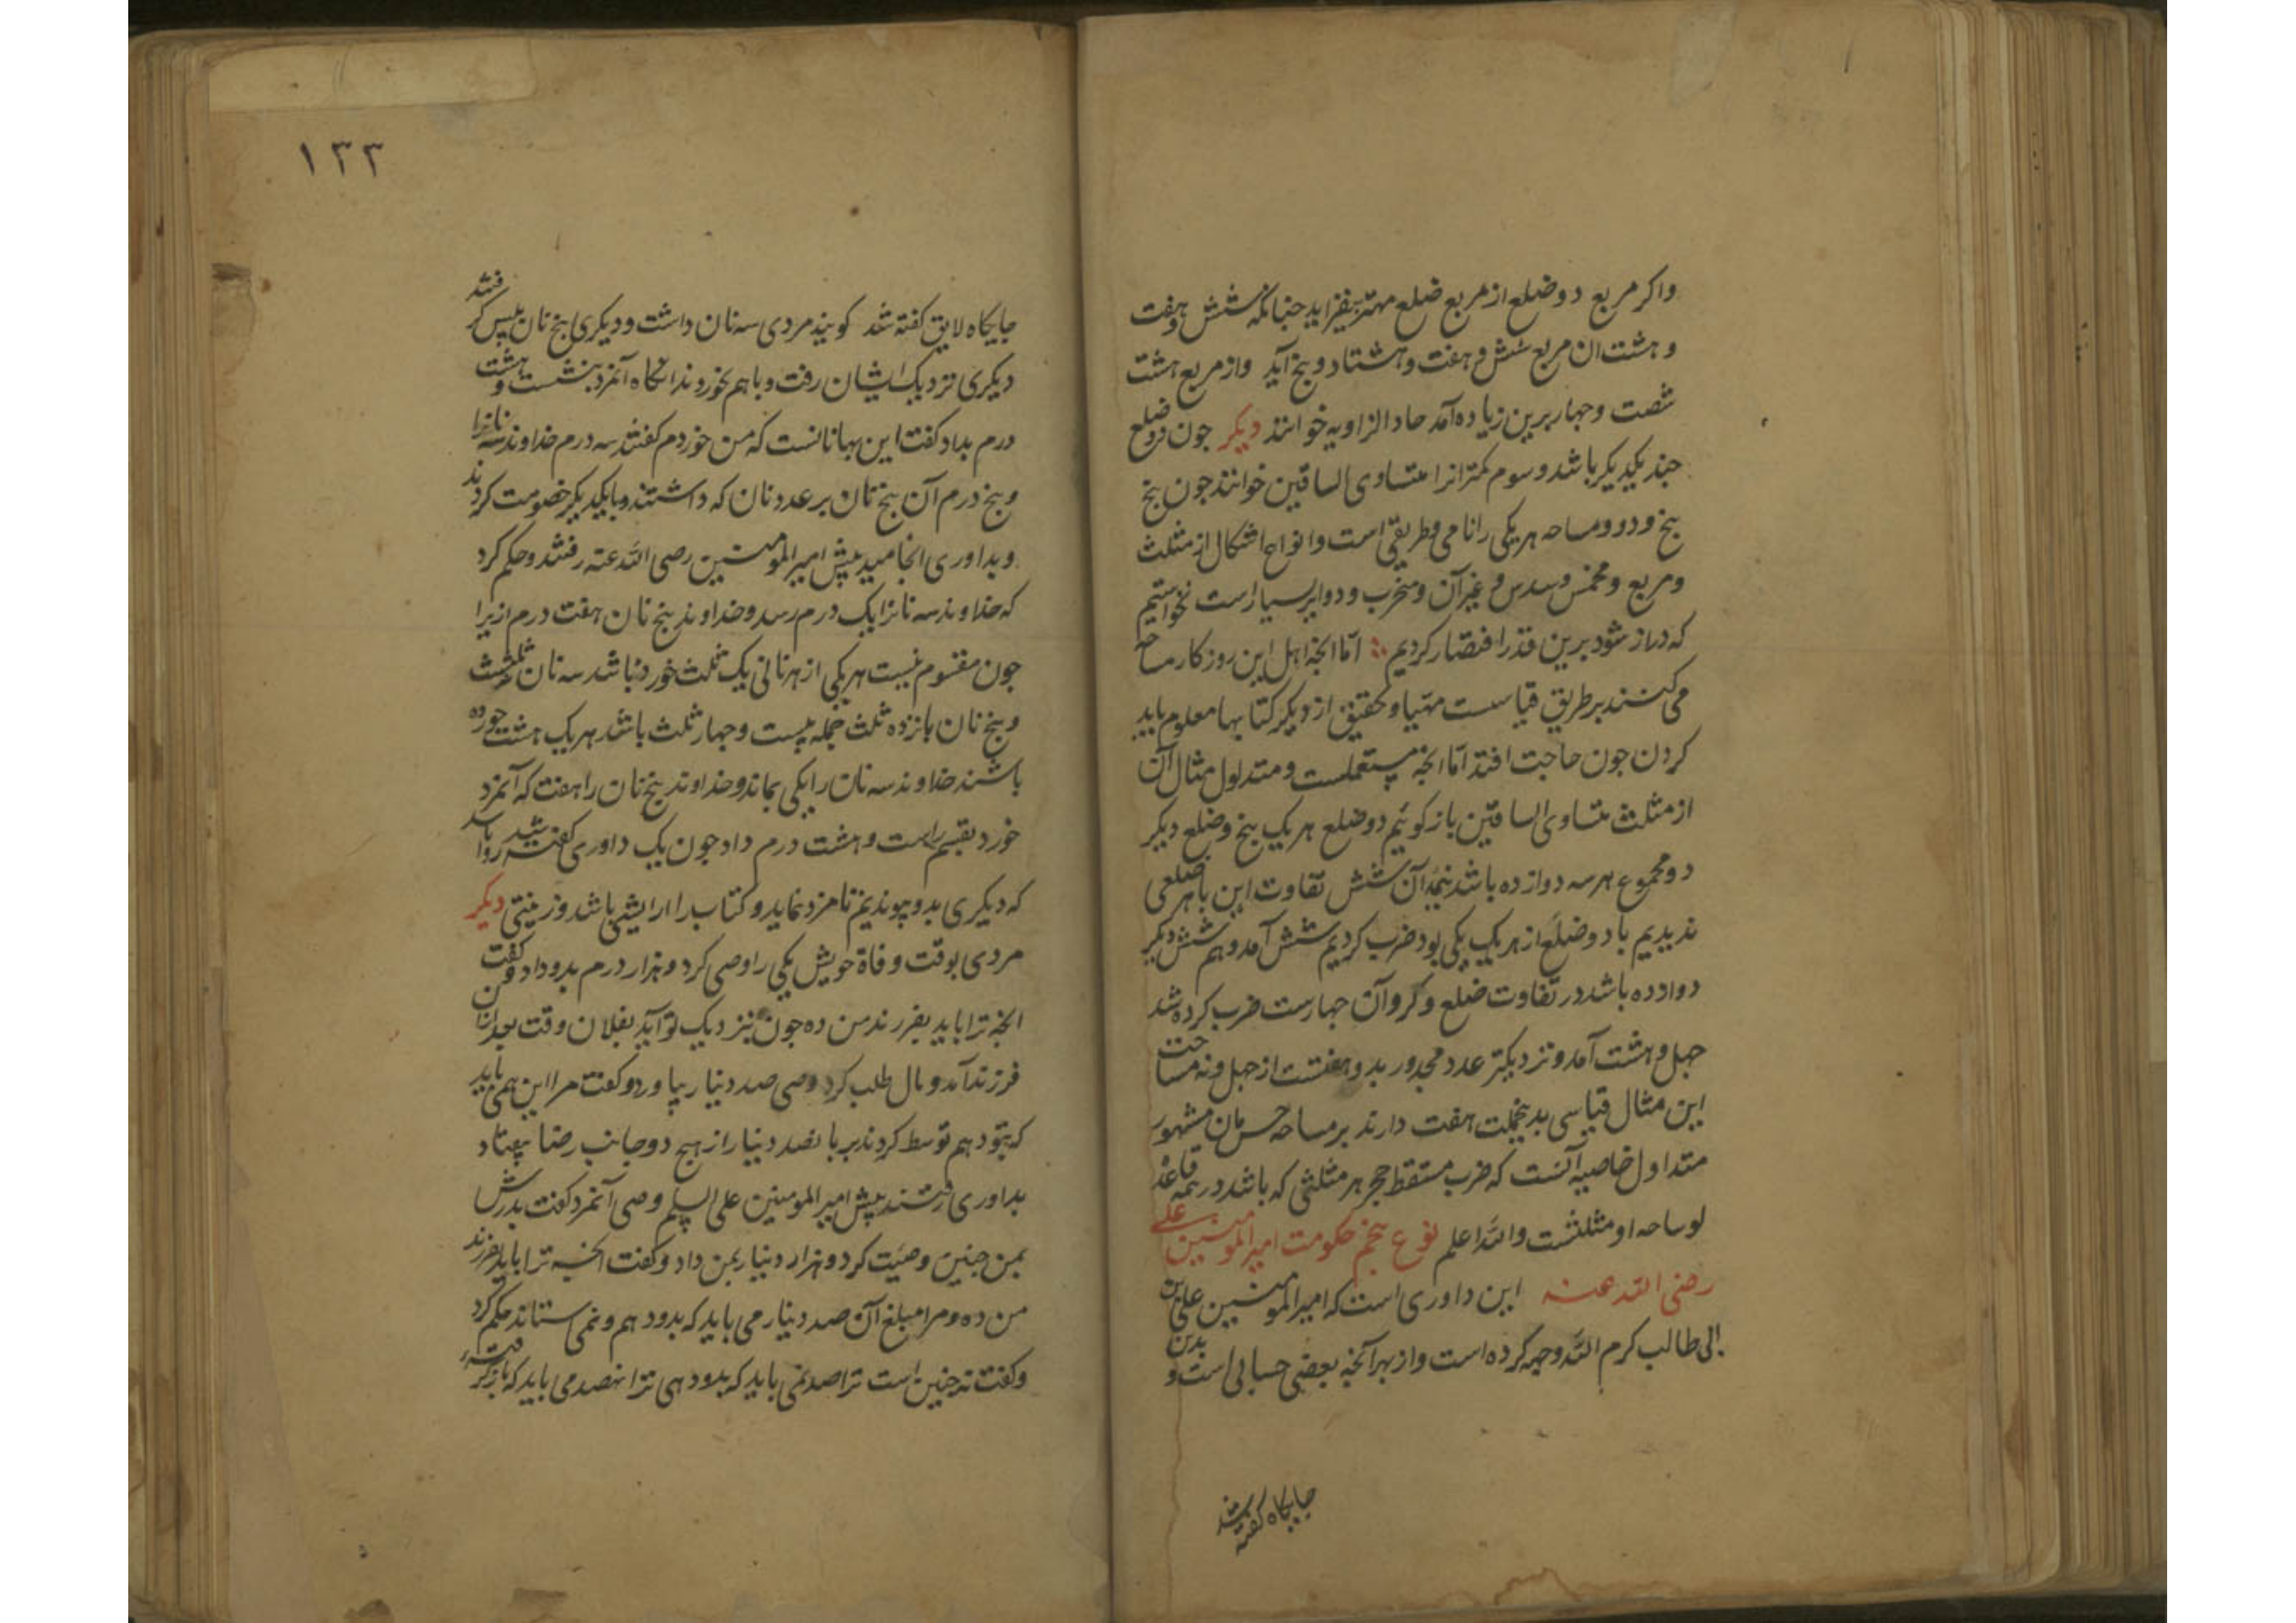 واکر مربع دو ضلع از مربع ضلع مهتر بیفزاید جنانکه شش و هفت
و هشت ان مربع شش و هفت و هشتاد و پنج آید واز مربع هشت
شصت وجهار برین زیاده آمد حاد الزاویه خوانند دیکر جون دو ضلع
جند یکدیکر باشد و سوم کمتر انرا متساوی الساقین خوانند جون پنج
پنج و دو و مساحه هر یکی را نامی و طریقی است وانواع اشکال از مثلث
ومربع ومخمس و مسدس و غیر آن ومنحرب ودوایر بسیارست نخواستیم
که دراز شود برین قدر اقتصار کردیم امّا انجه اهل این روزکار مساحه
می کنند بر طریق قیاسست مهیا و تحقیق از دیکر کتابها معلوم باید
کردن جون حاجت افتد امّا انجه مستعملست و متداول مثال آن
از مثلث متساوی الساقین باز کوئیم دو ضلع هر یک پنج و ضلع دیکر
دو مجموع هر سه دوازده باشد نیمهٔ آن شش تفاوت این با هر ضلعی
ندیدیم با دو ضلع از هر یک یکی بود ضرب کردیم شش آمد و هم شش دیکر
دوازده باشد در تفاوت ضلع و کر وآن جهارست ضرب کرده شد
جهل و هشت آمد و نزدیکتر عدد مجدور بدو هفتست از جهل و نه مساحت
این مثال قیاسی بدینجملت هفت دارند بر مساحه مشهور
متداول خاصیه آنست که ضرب مستقط حجر هر مثلثی که باشد در همه قاعده
او مساحه او مثلثست والله اعلم نوع پنجم حکومت امیر المومنین علی
رضی الله عنه این داوری است که امیر المومنین علی بن
ابی طالب کرم الله وجهه کرده است و از بهر آنجه بعضی حسابی است و بدین
جایکاه کفته شد
١٣٣
جایکاه لایق کفته شد کویند مردی سه نان داشت و دیکری پنج نان پس کر فتند
دیکری نزدیک ایشان رفت و با هم بخوردند انکاه آنمرد بنشست و هشت
درم بداد کفت این بهانانست که من خوردم کفتند سه درم خداوند سه نانرا
و پنج درم آن پنج نان بر عدد نان که داشتند و با یکدیکر خصومت کردند
و بداوری انجامید پیش امیر المومنین رضی الله عنه رفتند و حکم کرد
که خداوند سه نانرا یک درم رسد و خداوند پنج نان هفت درم ازیرا
جون مقسوم نیست هر یکی از هر نانی یک ثلث خورد باشد سه نان نه ثلث
و پنج نان بانزده ثلث جمله بیست وجهار ثلث باشد هر یک هشت خورده
باشند خداوند سه نان را یکی بماند و خداوند پنج نان را هفت که آنمرد
خورد بقسم راست و هشت درم داد جون یک داوری کفته شد روا باشد
که دیکری بدو پیوندیم تا مزد نماید و کتاب را ارایشی باشد و زینتی دیکر
مردی بوقت وفاة خویش یکی را وصی کرد و هزار درم بدو داد و کفت
انجه ترا باید بفرزند من ده جون نزدیک تو آید بفلان وقت بعد از ان
فرزند آمد و مال طلب کرد وصی صد دینار بیاورد و کفت مرا این همی باید
که بتو دهم توسط کردند بر بانصد دینار از هیج دو جانب رضا نیفتاد
بداوری رفتند پیش امیر المومنین علی السلم وصی آنمرد کفت بدرش
بمن جنین وصیّت کرد و هزار دینار بمن داد و کفت انجه ترا باید بفرزند
من ده و مرا مبلغ آن صد دینار می باید که بدو دهم و نمی ستاند حکم کرد
و کفت نه جنین است ترا صد نمی باید که بدو دهی ترا نهصد می باید که باز کرفتهٔ